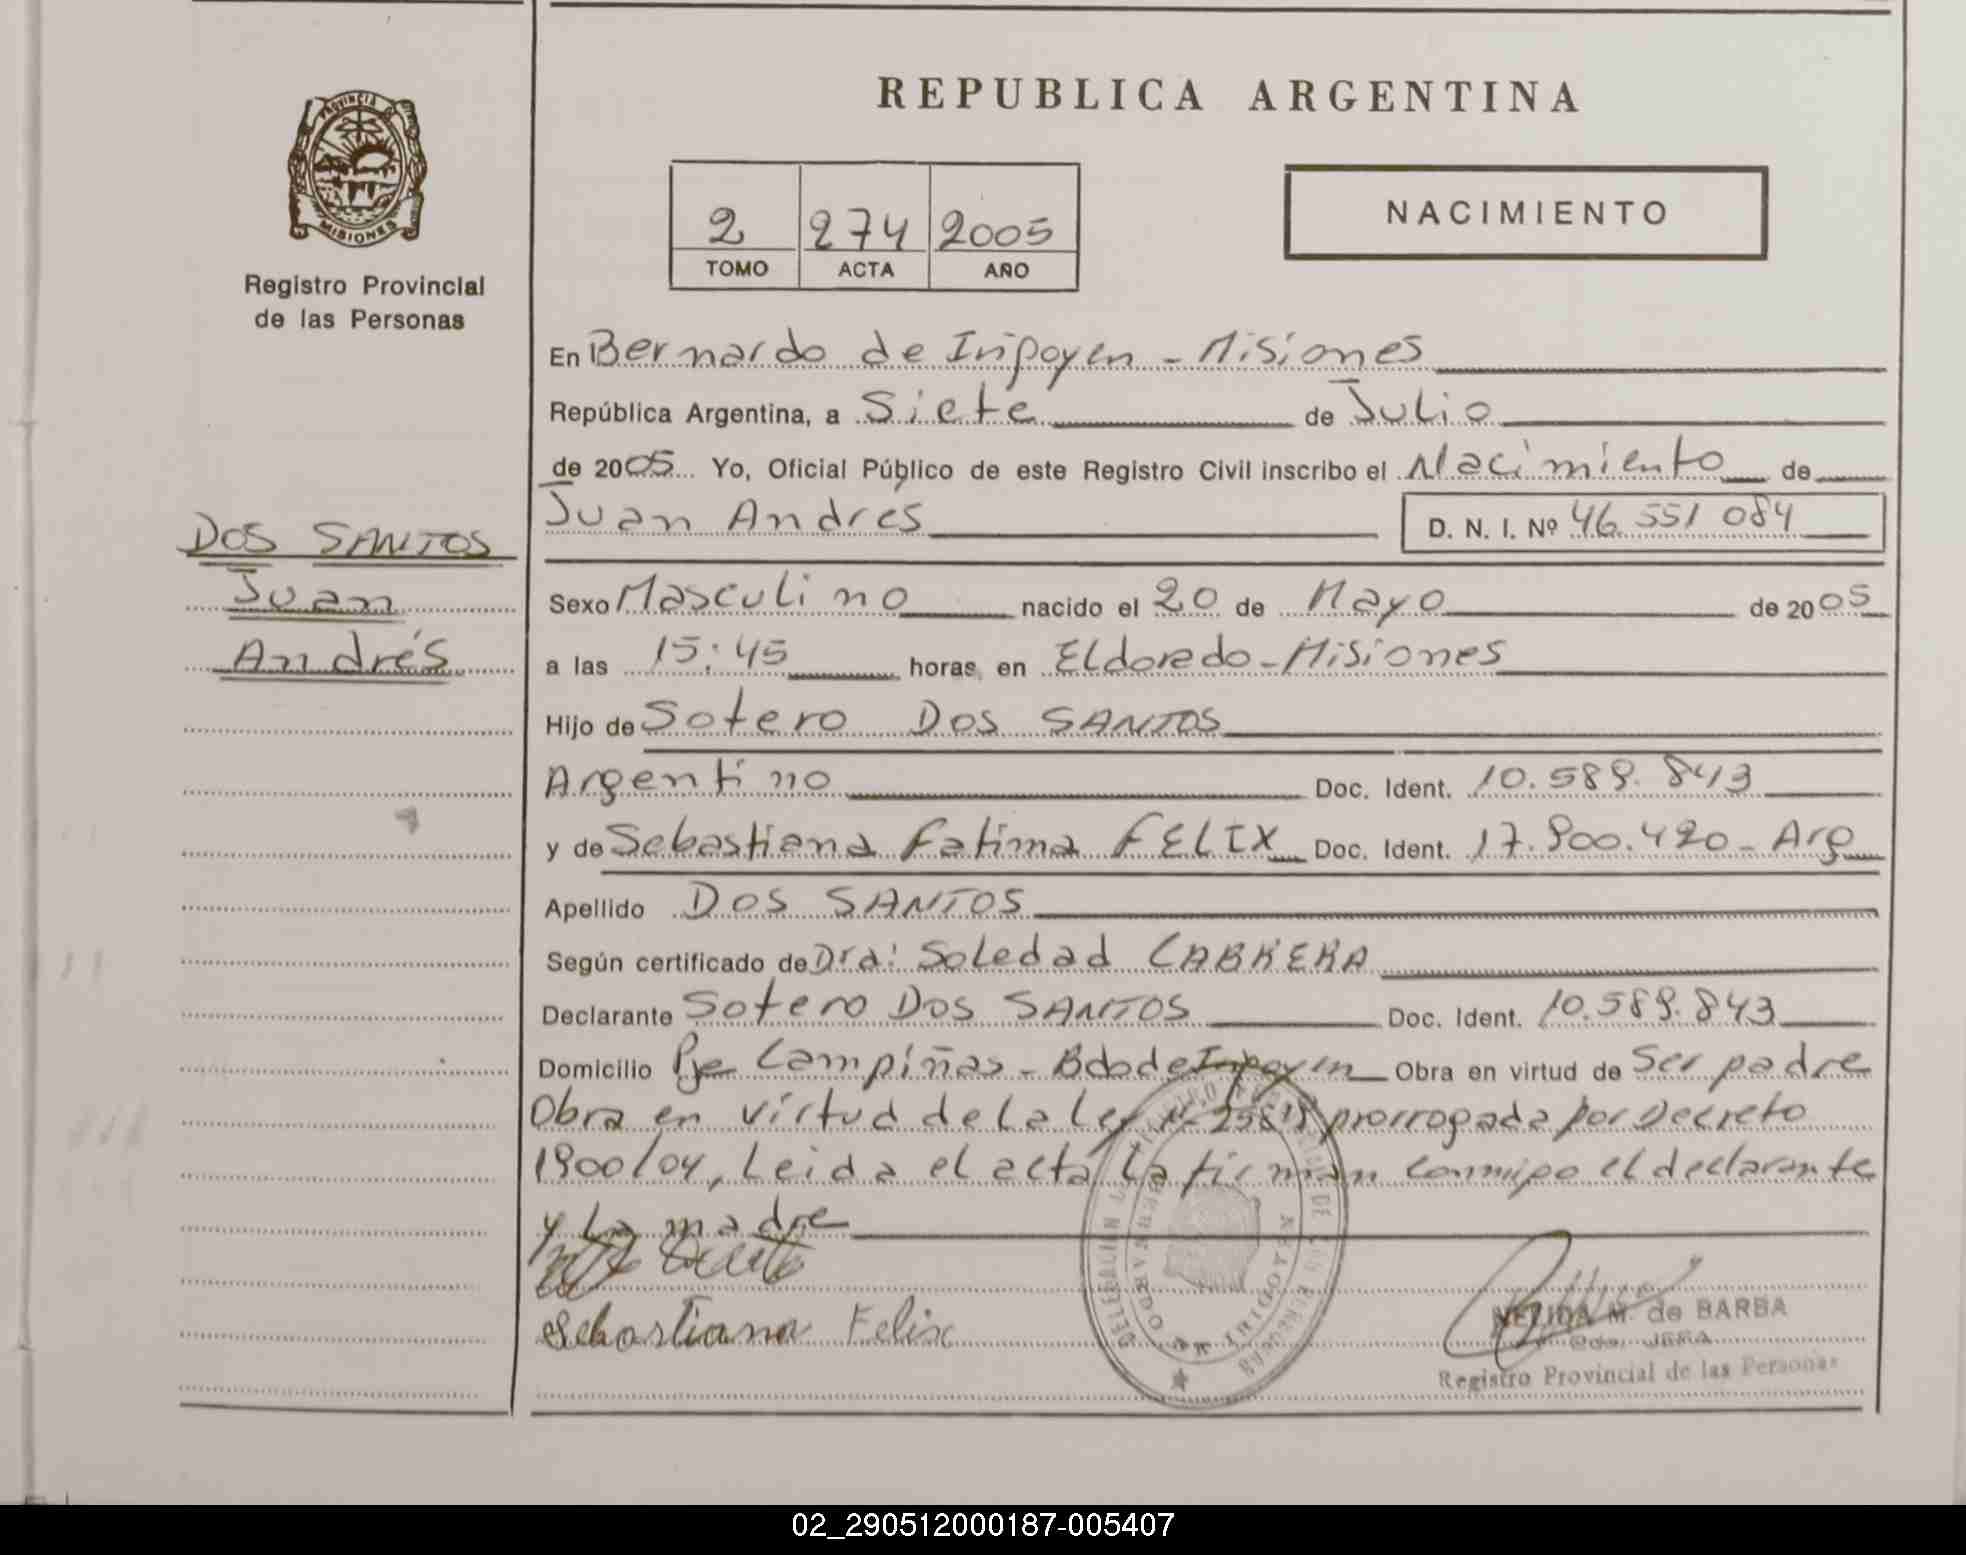 REPUBLICA ARGENTINA
PROVINCIA DE
MISIONES
Registro Provincial
de las Personas
2 274 2005
TOMO ACTA AÑO
NACIMIENTO
En Bernardo de Irigoyen - Misiones
República Argentina, a Siete de Julio
de 2005 Yo, Oficial Público de este Registro Civil inscribo el Nacimiento de
Juan Andres D. N. I. Nº 46.551 084
DOS SANTOS
Juan
Andrés
Sexo Masculino nacido el 20 de Mayo de 2005
a las 15:45 horas, en Eldorado - Misiones
Hijo de Sotero DOS SANTOS
Argentino Doc. Ident. 10.589.843
y de Sebastiana Fatima FELIX Doc. Ident. 17.900.420 - Arg
Apellido DOS SANTOS
Según certificado de Dra: Soledad CABRERA
Declarante Sotero DOS SANTOS Doc. Ident. 10.589.843
Domicilio Pje Campiñas - Bdo de Irigoyen Obra en virtud de Ser padre
Obra en virtud de la Ley Nº prorrogada por Decreto
1900/04, Leida el acta la firman conmigo el declarante
y la madre
Sebastiana Felix
NELIDA M. de BARBA
JEFA
Registro Provincial de las Personas
02_290512000187-005407